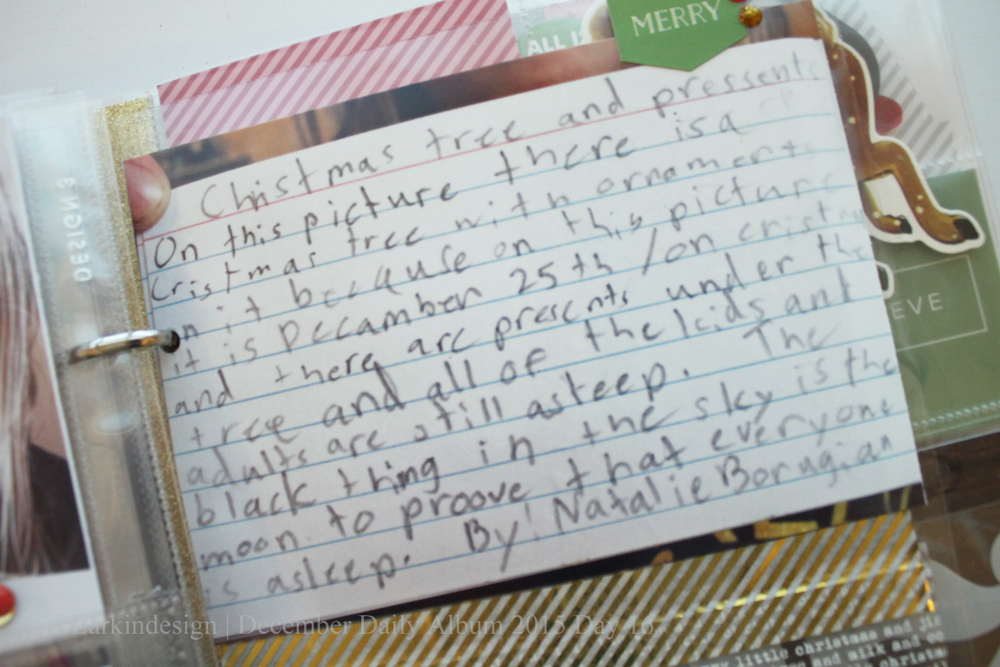 MERRY
ALL I
DESIGN B
Christmas tree and pressents
On this picture there is a
Cristmas tree with ornaments
on it because on this picture
it is Decamber 25th / on
and there are presents under the
tree and all of the kids ant
adults are still asteep. The
black thing in the sky is the
moon. to proove that everyone
is asleep. By: Natalie Borugian
EVE
little christmas and
and milk and
zarkindesign | December Daily Album 2015 Day 16